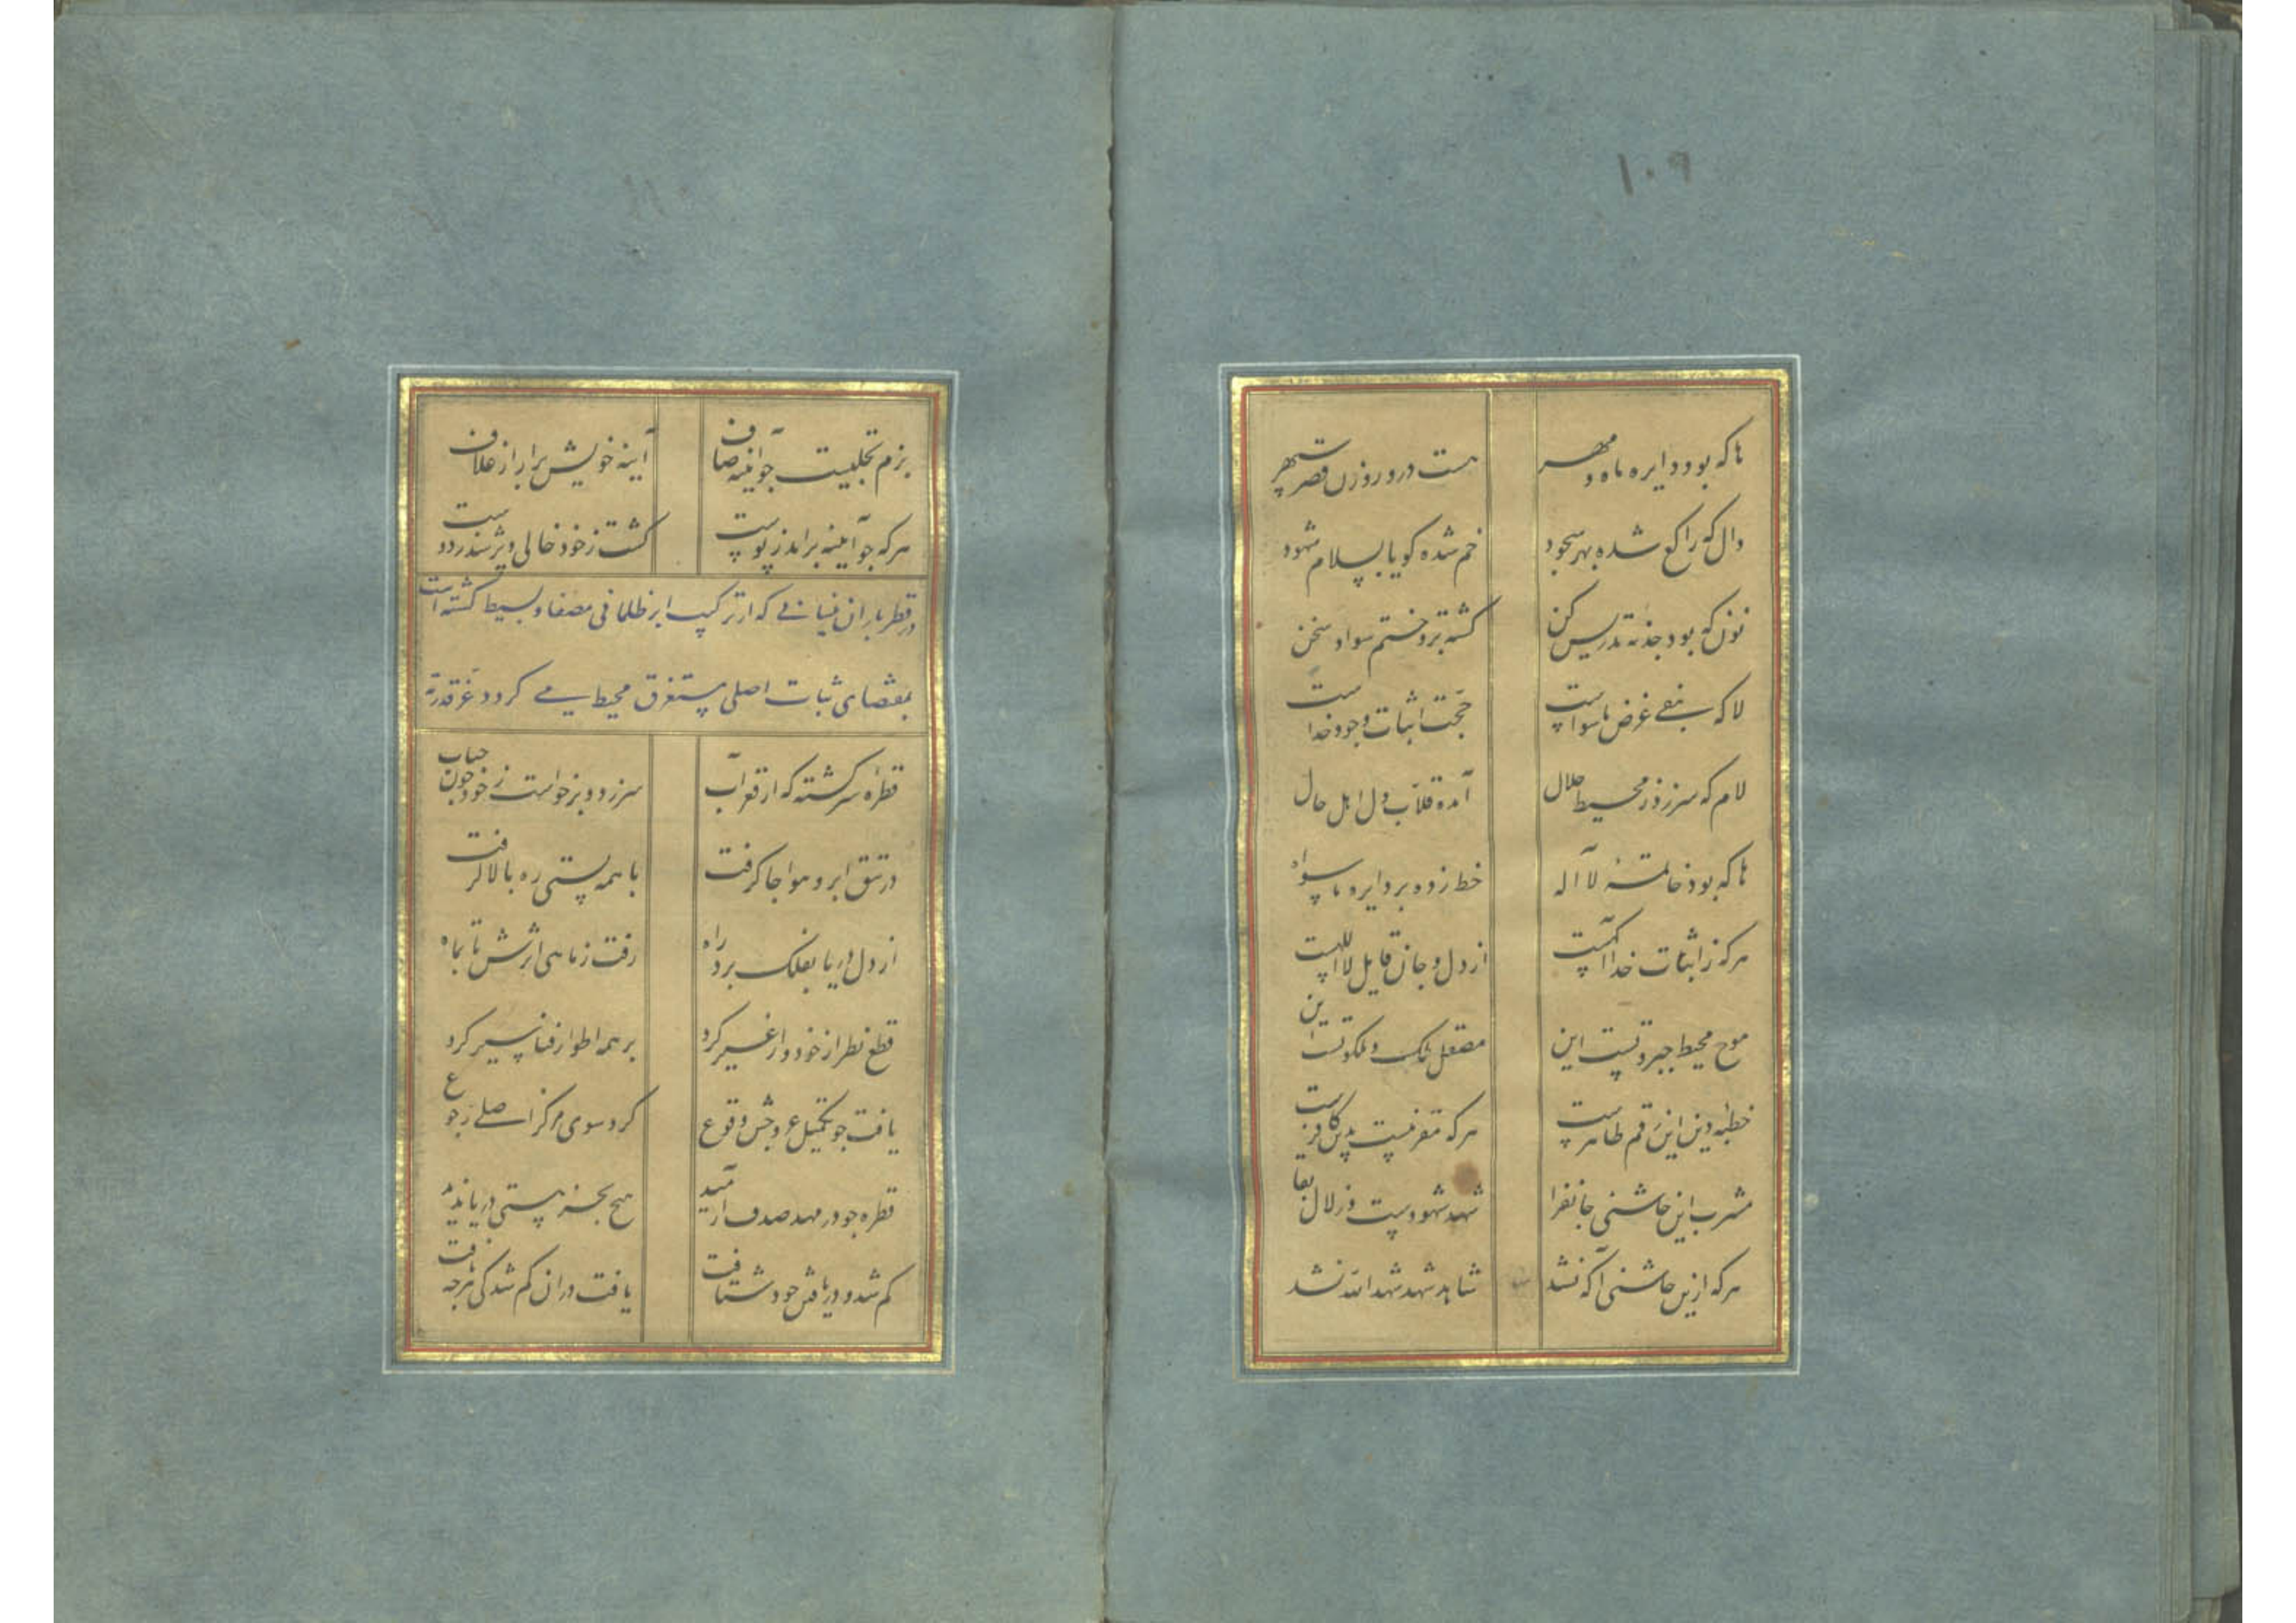 ۱۰۹
ها که بود دایره ماه و مهر هست درو روزن قصر سپهر
دال که راکع شده بهر سجود خم شده کویا بسلام شهود
نون که بود جذبه تدریس کن کشته برو ختم سواد سخن
لا که بنفی غرض ماسواست حجت اثبات وجود خداست
لام که سر زد ز محیط جلال آمده قلاب دل اهل حال
ها که بود خاتمهٔ لا اله خط زده بر دایره ماسواه
هرکه ز اثبات خدا آکهست از دل و جان قایل لله است
موج محیط جبروتست این مصقل ملک و ملکوتست این
خطبه دین این رقم طاهرست هرکه مقر نیست بدین کافرست
مشرب این چاشنی جانفزا شهد شهودست و زلال بقا
هرکه ازین چاشنی آکه نشد شاهد شهد شهدا لله نشد
بزم تجلیست چو آیینه صاف آینه خویش برار از غلاف
هرکه چو آیینه برآمد ز پوست کشت ز خود خالی و پر شد ز دوست
در قطر باران نیسانی که از ترکیب ابر ظلمانی مصفا و بسیط کشته است
بمقتضای ثبات اصلی مستغرق محیط می کردد
قطره سرکشته که از قعر آب سر زد و برخواست ز خود چون حباب
در تتق ابر و هوا جا کرفت با همه پستی ره بالا کرفت
از دل دریا بفلک برد راه رفت ز ماهی اثرش تا بماه
قطع نظر از خود و از غیر کرد بر همه اطوار فنا سیر کرد
یافت چو تکمیل عروجش وقوع کرد سوی مرکز اصلی رجوع
قطره چو در مهد صدف آرمید هیچ بجز هستی دریا ندید
کم شد و دریافتن خود شتافت یافت در ان کم شدکی هرچه یافت